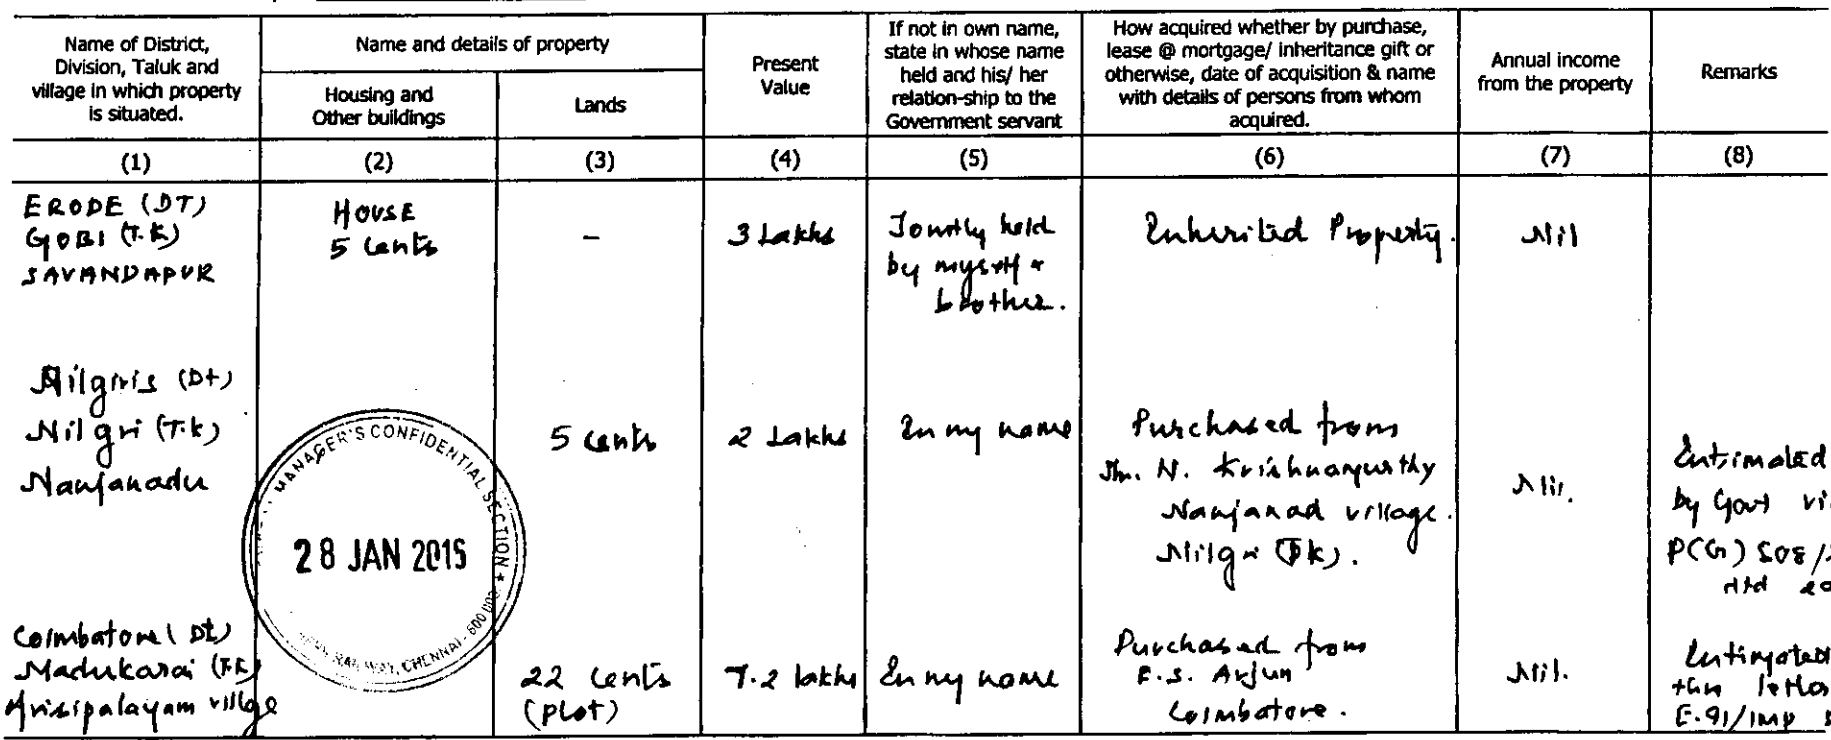 Name of District,
Division, Taluk and
village in which property
is situated.
Name and details of property
Housing and
Other buildings
Lands
Present
Value
If not in own name,
state in whose name
held and his/ her
relation-ship to the
Government servant
How acquired whether by purchase,
lease @ mortgage/ inheritance gift or
otherwise, date of acquisition & name
with details of persons from whom
acquired.
Annual income
from the property
Remarks
(1) (2) (3) (4) (5) (6) (7) (8)
ERODE (DT)
GOBI (T.K)
SAVANDAPUR
HOUSE
5 Cents
–
3 Lakhs
Jointly held
by myself &
brother.
Inherited Property.
Nil
Nilgiris (Dt)
Nilgri (T.k)
Nanjanadu
5 cents
2 Lakhs
In my name
Purchased from
N. Krishnamurthy
Nanjanad village.
Nilgri (Tk).
Nil.
Intimated
by Govt
P(G) 508/
dtd
MANAGER'S CONFIDENTIAL SECTION *
28 JAN 2015
RAILWAY, CHENNAI - 600 003
Coimbatore (Dt)
Madukarai (T.K)
Arisipalayam village
22 Cents
(Plot)
7.2 lakhs
In my name
Purchased from
E.S. Arjun
Coimbatore.
Nil.
Intimated
letter
E.91/Imp